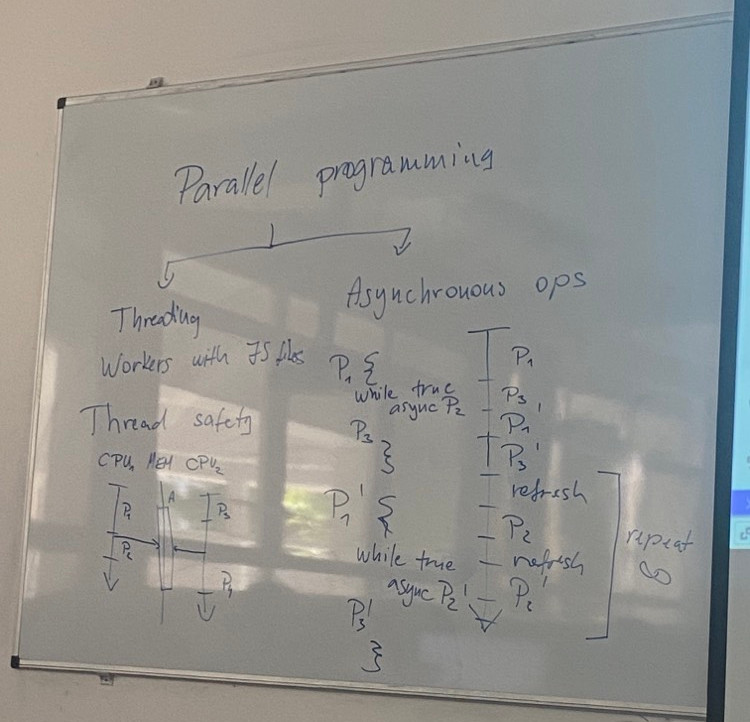 Parallel programming
Threading
Workers with JS files
Thread safety
CPU₁ MEM CPU₂
P₁
P₂
A
P₃
P₄
Asynchronous ops
P₁ {
while true
async P₂
P₃
}
P₁' {
while true
async P₂'
P₃'
}
P₁
P₃
P₁'
P₃'
refresh
P₂
refresh
P₂'
repeat
∞